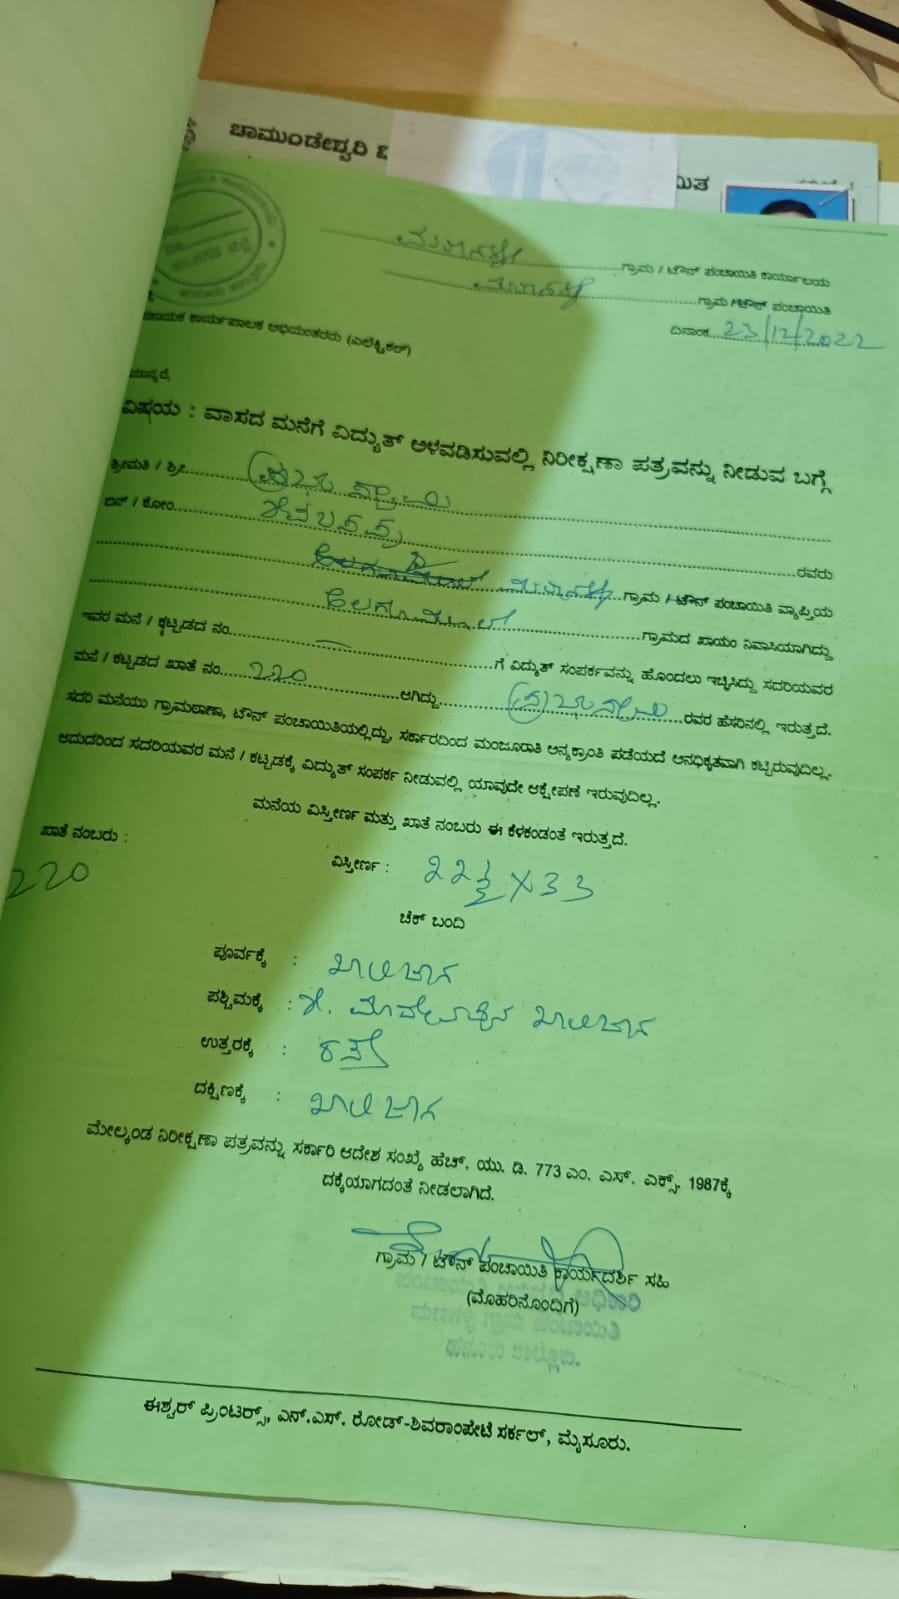 ಚಾಮುಂಡೇಶ್ವರಿ ವಿ
ಮಿತ
ಗ್ರಾಮ / ಟೌನ್ ಪಂಚಾಯಿತಿ ಕಾರ್ಯಾಲಯ
ಗ್ರಾಮ / ಟೌನ್ ಪಂಚಾಯಿತಿ
ದಿನಾಂಕ 23/12/2022
ಕಾರ್ಯಪಾಲಕ ಅಭಿಯಂತರರು (ಎಲೆಕ್ಟ್ರಿಕಲ್)
ಮಾನ್ಯರೆ,
ವಿಷಯ : ವಾಸದ ಮನೆಗೆ ವಿದ್ಯುತ್ ಅಳವಡಿಸುವಲ್ಲಿ ನಿರೀಕ್ಷಣಾ ಪತ್ರವನ್ನು ನೀಡುವ ಬಗ್ಗೆ
ಶ್ರೀಮತಿ / ಶ್ರೀ ಪ್ರಭುಸ್ವಾಮಿ
ಬಿನ್ / ಕೋಂ ರವರು
ಗ್ರಾಮ / ಟೌನ್ ಪಂಚಾಯಿತಿ ವ್ಯಾಪ್ತಿಯ
ಗ್ರಾಮದ ಖಾಯಂ ನಿವಾಸಿಯಾಗಿದ್ದು
ಇವರ ಮನೆ / ಕಟ್ಟಡದ ನಂ. — ಗೆ ವಿದ್ಯುತ್ ಸಂಪರ್ಕವನ್ನು ಹೊಂದಲು ಇಚ್ಛಿಸಿದ್ದು ಸದರಿಯವರ
ಮನೆ / ಕಟ್ಟಡದ ಖಾತೆ ನಂ. 220 ಆಗಿದ್ದು ಪ್ರಭುಸ್ವಾಮಿ ರವರ ಹೆಸರಿನಲ್ಲಿ ಇರುತ್ತದೆ.
ಸದರಿ ಮನೆಯು ಗ್ರಾಮಠಾಣಾ, ಟೌನ್ ಪಂಚಾಯಿತಿಯಲ್ಲಿದ್ದು, ಸರ್ಕಾರದಿಂದ ಮಂಜೂರಾತಿ ಅನ್ಯಕ್ರಾಂತಿ ಪಡೆಯದೆ ಅನಧಿಕೃತವಾಗಿ ಕಟ್ಟಿರುವುದಿಲ್ಲ.
ಆದುದರಿಂದ ಸದರಿಯವರ ಮನೆ / ಕಟ್ಟಡಕ್ಕೆ ವಿದ್ಯುತ್ ಸಂಪರ್ಕ ನೀಡುವಲ್ಲಿ ಯಾವುದೇ ಆಕ್ಷೇಪಣೆ ಇರುವುದಿಲ್ಲ.
ಮನೆಯ ವಿಸ್ತೀರ್ಣ ಮತ್ತು ಖಾತೆ ನಂಬರು ಈ ಕೆಳಕಂಡಂತೆ ಇರುತ್ತದೆ.
ಖಾತೆ ನಂಬರು :
220
ವಿಸ್ತೀರ್ಣ : 22½ X 33
ಚೆಕ್ ಬಂದಿ
ಪೂರ್ವಕ್ಕೆ : ಖಾಲಿ ಜಾಗ
ಪಶ್ಚಿಮಕ್ಕೆ : ಖಾಲಿ ಜಾಗ
ಉತ್ತರಕ್ಕೆ : ರಸ್ತೆ
ದಕ್ಷಿಣಕ್ಕೆ : ಖಾಲಿ ಜಾಗ
ಮೇಲ್ಕಂಡ ನಿರೀಕ್ಷಣಾ ಪತ್ರವನ್ನು ಸರ್ಕಾರಿ ಆದೇಶ ಸಂಖ್ಯೆ ಹೆಚ್. ಯು. ಡಿ. 773 ಎಂ. ಎಸ್. ಎಕ್ಸ್. 1987ಕ್ಕೆ
ದಕ್ಕೆಯಾಗದಂತೆ ನೀಡಲಾಗಿದೆ.
ಗ್ರಾಮ / ಟೌನ್ ಪಂಚಾಯಿತಿ ಕಾರ್ಯದರ್ಶಿ ಸಹಿ
(ಮೊಹರಿನೊಂದಿಗೆ)
ಪಂಚಾಯಿತಿ ಅಭಿವೃದ್ಧಿ ಅಧಿಕಾರಿ
ಗ್ರಾಮ ಪಂಚಾಯಿತಿ
ಈಶ್ವರ್ ಪ್ರಿಂಟರ್ಸ್, ಎನ್.ಎಸ್. ರೋಡ್-ಶಿವರಾಂಪೇಟೆ ಸರ್ಕಲ್, ಮೈಸೂರು.